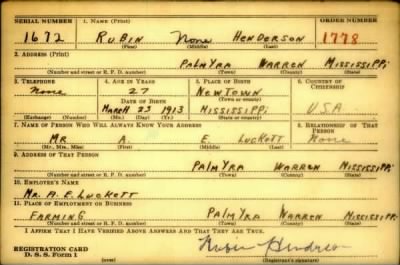 SERIAL NUMBER 1. NAME (Print) ORDER NUMBER
1672 RUBIN None HENDERSON 1778
(First) (Middle) (Last)
2. ADDRESS (Print)
PALMYRA WARREN MISSISSIPPI
(Number and street or R. F. D. number) (Town) (County) (State)
3. TELEPHONE 4. AGE IN YEARS 5. PLACE OF BIRTH 6. COUNTRY OF CITIZENSHIP
None 27 NEWTOWN
DATE OF BIRTH (Town or county)
MARCH 23 1913 MISSISSIPPI U.S.A
(Exchange) (Number) (Mo.) (Day) (Yr.) (State or country)
7. NAME OF PERSON WHO WILL ALWAYS KNOW YOUR ADDRESS 8. RELATIONSHIP OF THAT PERSON
MR A. E. LUCKETT None
(Mr., Mrs., Miss) (First) (Middle) (Last)
9. ADDRESS OF THAT PERSON
PALMYRA WARREN MISSISSIPPI
(Number and street or R. F. D. number) (Town) (County) (State)
10. EMPLOYER'S NAME
MR. A. E. LUCKETT
11. PLACE OF EMPLOYMENT OR BUSINESS
FARMING PALMYRA WARREN MISSISSIPPI
(Number and street or R. F. D. number) (Town) (County) (State)
I AFFIRM THAT I HAVE VERIFIED ABOVE ANSWERS AND THAT THEY ARE TRUE.
REGISTRATION CARD
D. S. S. Form 1 (over) (Registrant's signature)